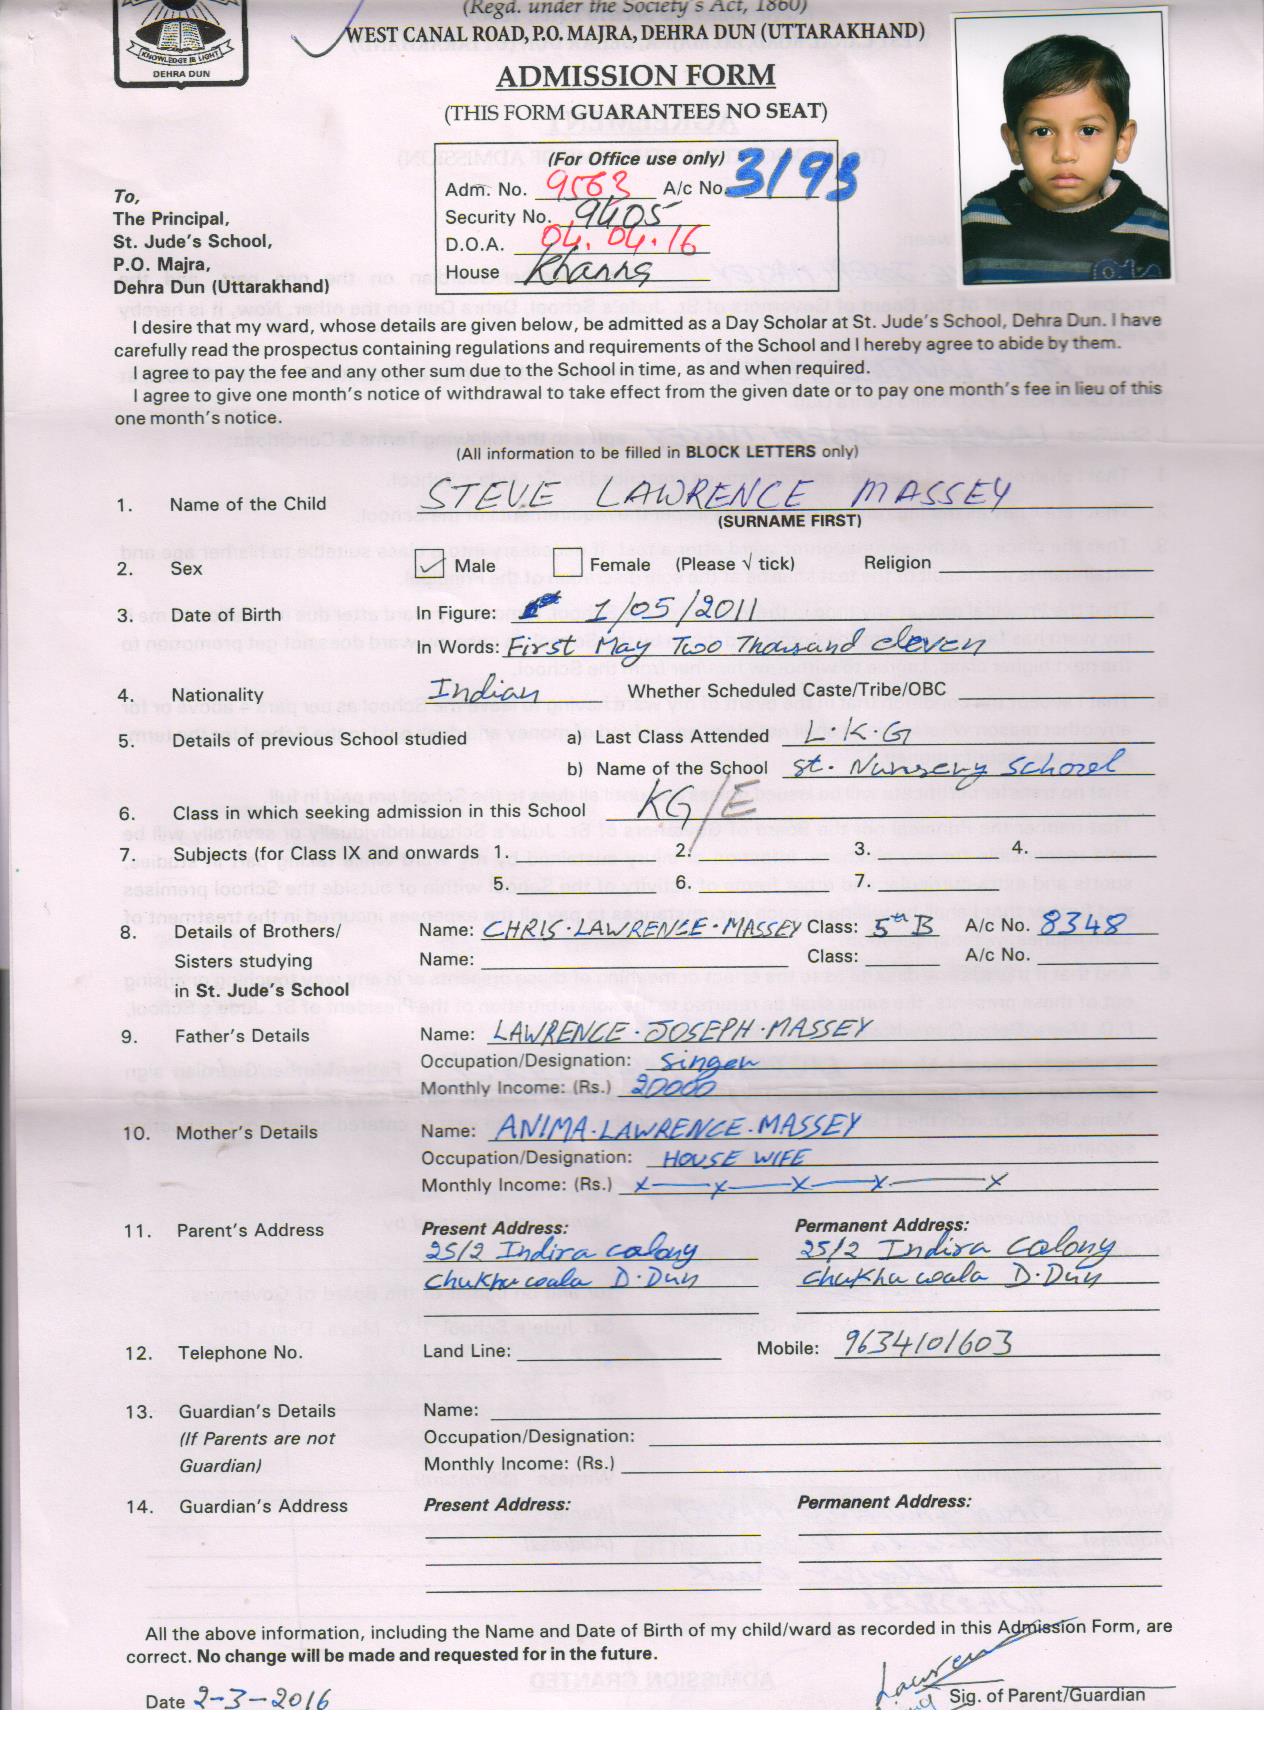 (Regd. under the Society's Act, 1860)
WEST CANAL ROAD, P.O. MAJRA, DEHRA DUN (UTTARAKHAND)
KNOWLEDGE IS LIGHT
DEHRA DUN
ADMISSION FORM
(THIS FORM GUARANTEES NO SEAT)
(For Office use only)
Adm. No. 9563 A/c No. 3193
Security No. 9405
D.O.A. 04.04.16
House Khanna
To,
The Principal,
St. Jude's School,
P.O. Majra,
Dehra Dun (Uttarakhand)
I desire that my ward, whose details are given below, be admitted as a Day Scholar at St. Jude's School, Dehra Dun. I have
carefully read the prospectus containing regulations and requirements of the School and I hereby agree to abide by them.
I agree to pay the fee and any other sum due to the School in time, as and when required.
I agree to give one month's notice of withdrawal to take effect from the given date or to pay one month's fee in lieu of this
one month's notice.
(All information to be filled in BLOCK LETTERS only)
1. Name of the Child STEVE LAWRENCE MASSEY
(SURNAME FIRST)
2. Sex Male Female (Please √ tick) Religion
3. Date of Birth In Figure: 1/05/2011
In Words: First May Two Thousand eleven
4. Nationality Indian Whether Scheduled Caste/Tribe/OBC
5. Details of previous School studied a) Last Class Attended L.K.G
b) Name of the School St. Nursery School
6. Class in which seeking admission in this School KG/E
7. Subjects (for Class IX and onwards 1. 2. 3. 4.
5. 6. 7.
8. Details of Brothers/ Name: CHRIS.LAWRENCE.MASSEY Class: 5th B A/c No. 8348
Sisters studying Name: Class: A/c No.
in St. Jude's School
9. Father's Details Name: LAWRENCE.JOSEPH.MASSEY
Occupation/Designation: Singer
Monthly Income: (Rs.) 20000
10. Mother's Details Name: ANIMA.LAWRENCE.MASSEY
Occupation/Designation: HOUSE WIFE
Monthly Income: (Rs.) x—x—x—x—x
11. Parent's Address Present Address: Permanent Address:
25/2 Indira Colony 25/2 Indira Colony
Chukhuwala D.Dun Chukhuwala D.Dun
12. Telephone No. Land Line: Mobile: 9634101603
13. Guardian's Details Name:
(If Parents are not Occupation/Designation:
Guardian) Monthly Income: (Rs.)
14. Guardian's Address Present Address: Permanent Address:
All the above information, including the Name and Date of Birth of my child/ward as recorded in this Admission Form, are
correct. No change will be made and requested for in the future.
Date 2-3-2016 Sig. of Parent/Guardian